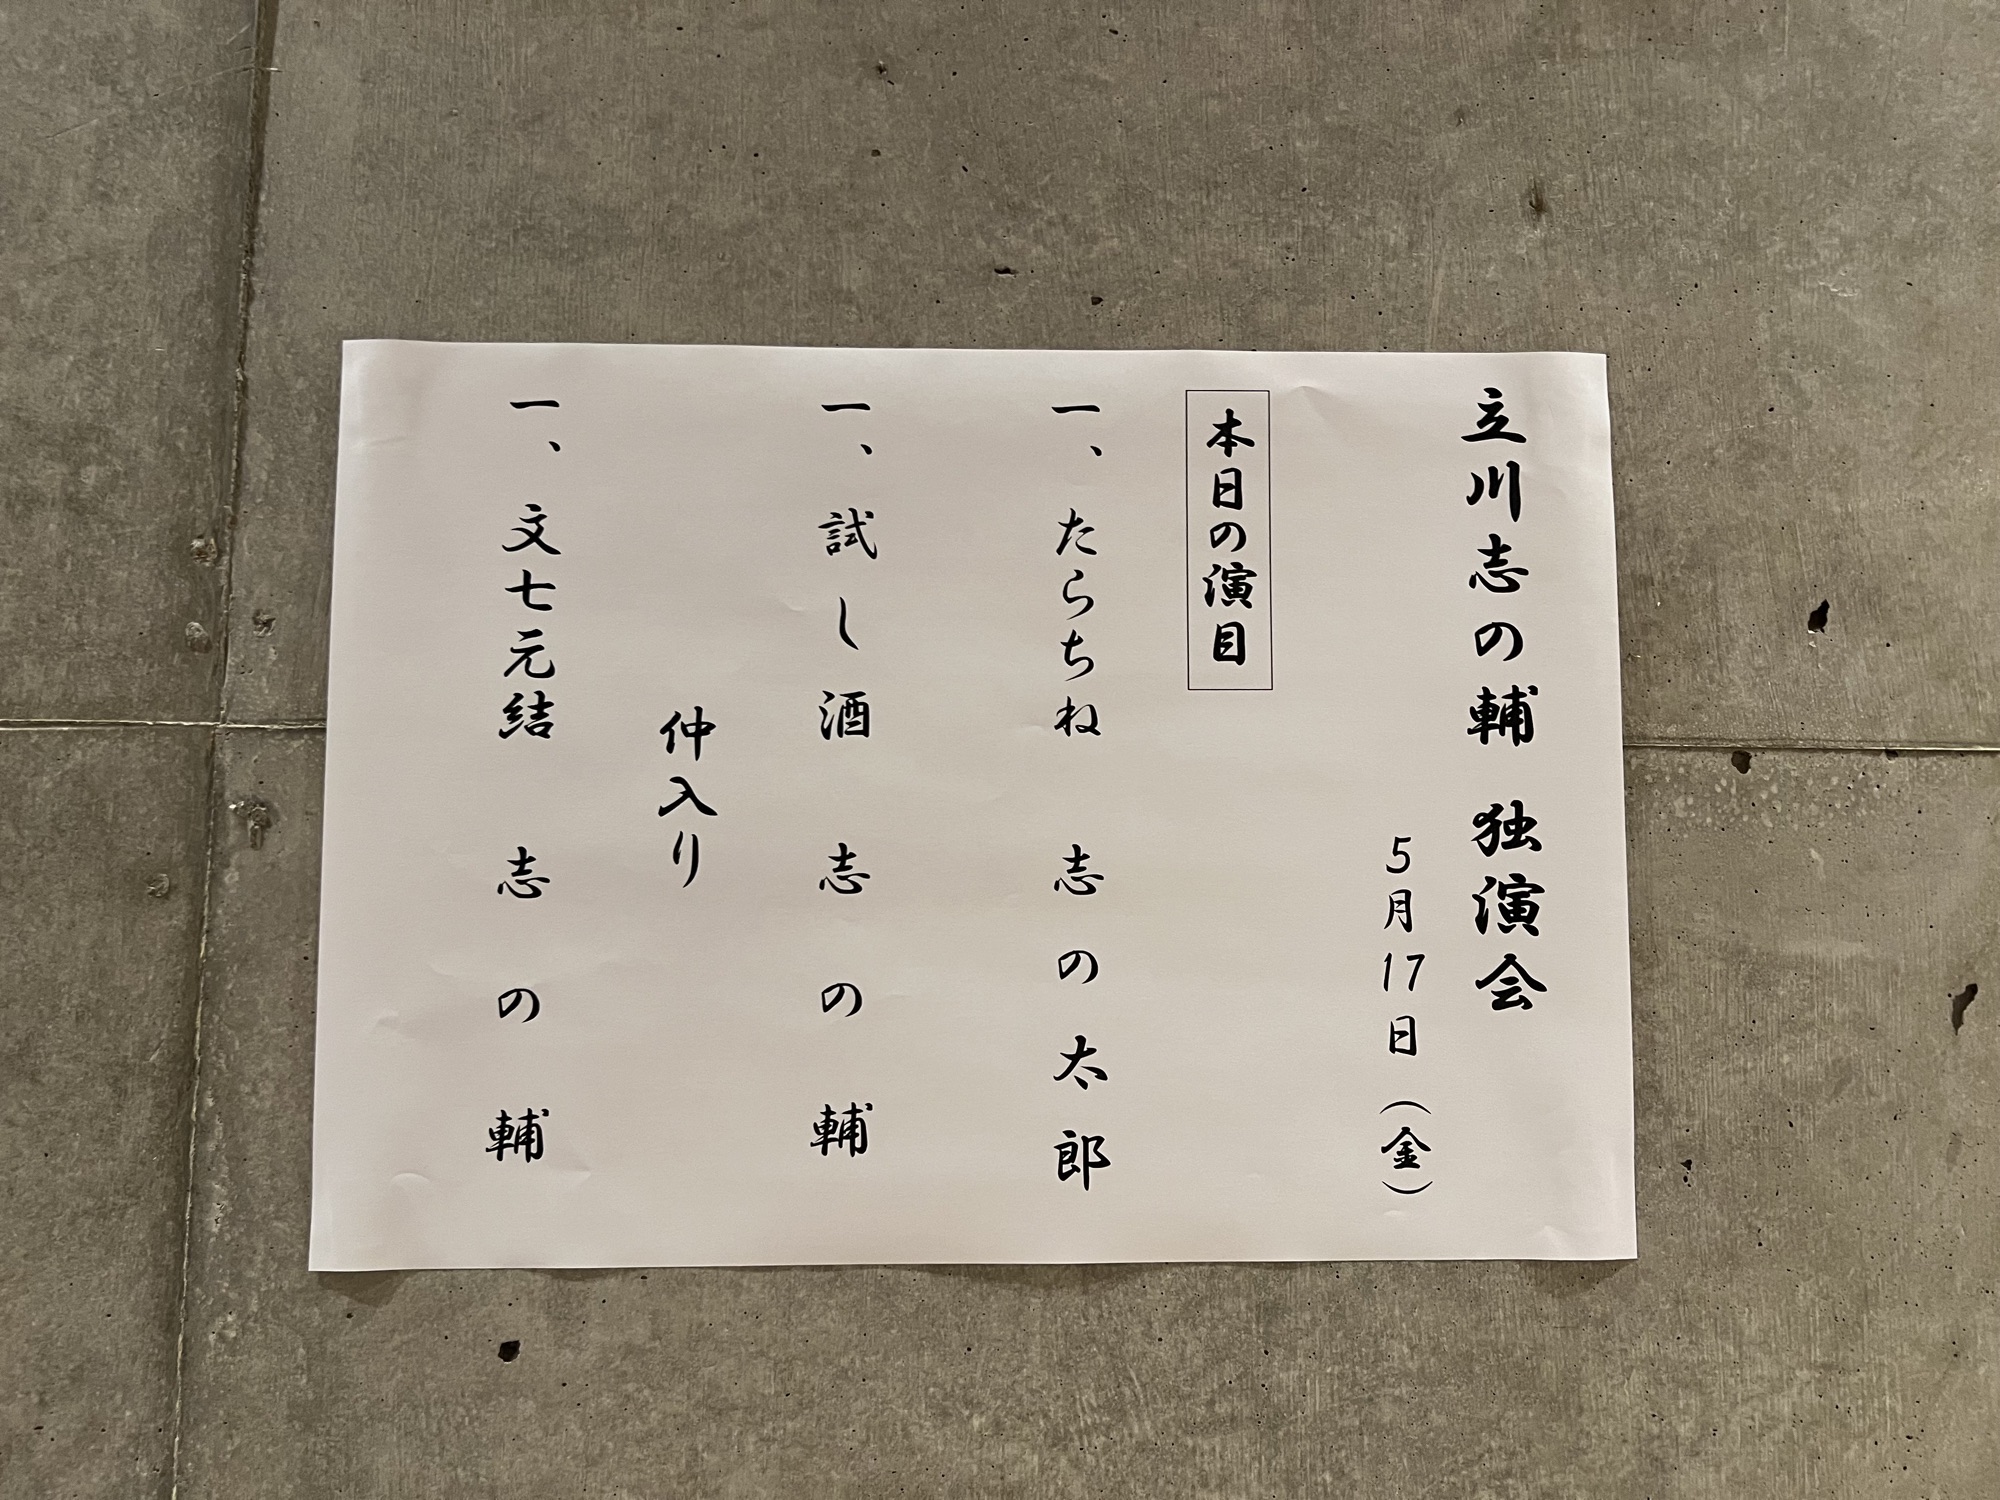 立川志の輔 独演会
5月17日（金）
本日の演目
一、たらちね 志の太郎
一、試し酒 志の輔
仲入り
一、文七元結 志の輔